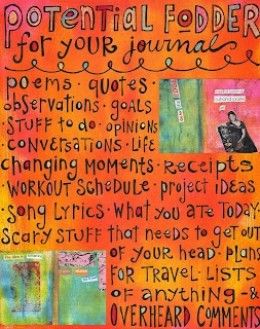 POTENTIAL FODDER
for YOUR journal
poems · quotes ·
observations · goals
STUFF to do · opinions
· CONVERSATIONS · LIFE
changing MOMENTS · RECEIPTS
WORKOUT SCHEDULE · project IDEAS
· SONG LYRICS · WHAT YOU ATE TODAY ·
SCARY STUFF that needs to get OUT
OF YOUR HEAD · PLANS
FOR TRAVEL · LISTS
OF ANYTHING · &
OVERHEARD COMMENTS